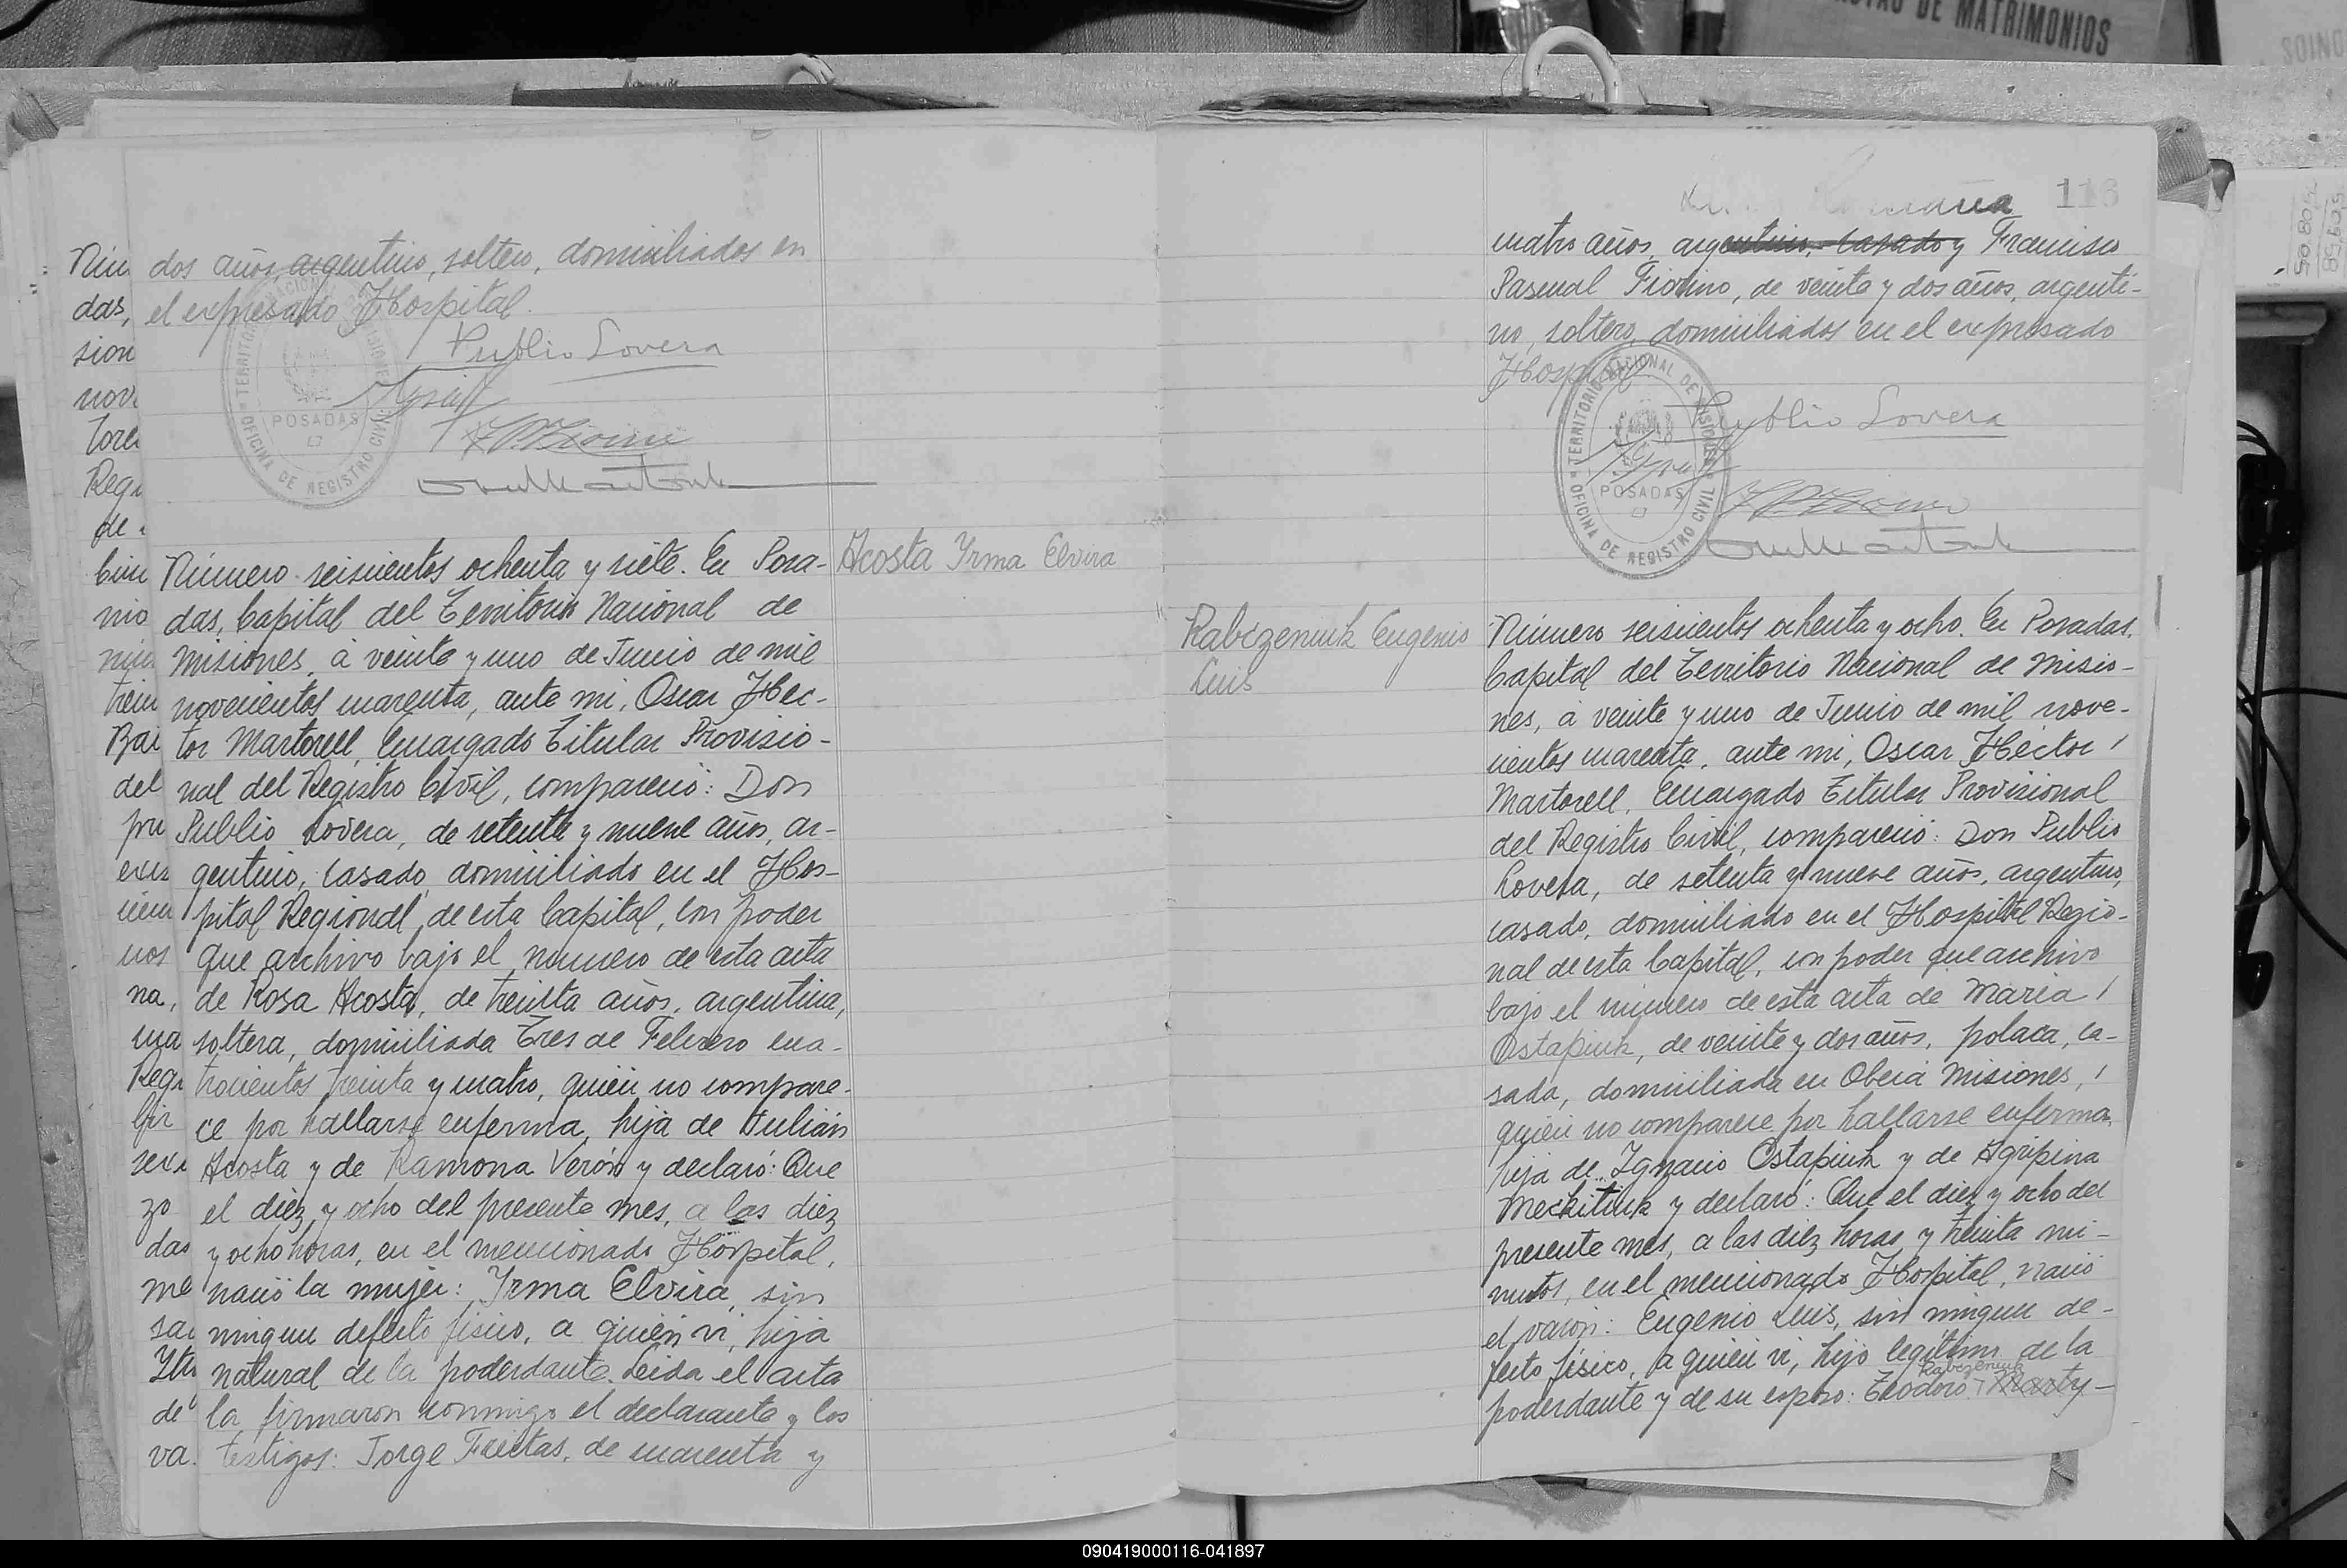 DE MATRIMONIOS
dos años, argentino, soltero, domiciliados en
el expresado Hospital.
Publio Lovera
TERRITORIO NACIONAL DE MISIONES
POSADAS
OFICINA DE REGISTRO CIVIL
Número seiscientos ochenta y siete. En Posa-
das, Capital del Territorio Nacional de
Misiones, á veinte y uno de Junio de mil
novecientos cuarenta, ante mi, Oscar Hec-
tor Martorell, Encargado Titular Provisio-
nal del Registro Civil, compareció: Don
Publio Lovera, de setenta y nueve años, ar-
gentino, casado, domiciliado en el Hos-
pital Regional, de esta Capital, con poder
que archivo bajo el número de esta acta
de Rosa Acosta, de treinta años, argentina,
soltera, domiciliada Tres de Febrero cua-
trocientos treinta y cuatro, quién no compare-
ce por hallarse enferma, hija de Julián
Acosta y de Ramona Verón y declaró: Que
el diez y ocho del presente mes, a las diez
y ocho horas, en el mencionado Hospital,
nació la mujer: Yrma Elvira, sin
ningun defecto físico, a quién vi, hija
natural de la poderdante. Leida el acta
la firmaron conmigo el declarante y los
testigos: Jorge Freitas, de cuarenta y
Acosta Yrma Elvira
Nún
das,
sion
nov
tore
Regi
de
nio
trein
Bai
del
pu
nos
na,
Regi
zo
das
me
de
va
116
cuatro años, argentino, casado y Francisco
Pascual Fiorino, de veinte y dos años, argenti-
no, soltero, domiciliados en el expresado
Hospital.
Publio Lovera
TERRITORIO NACIONAL DE MISIONES
POSADAS
OFICINA DE REGISTRO CIVIL
Rabczeniuk Eugenio
Luis
Número seiscientos ochenta y ocho. En Posadas,
Capital del Territorio Nacional de Misio-
nes, á veinte y uno de Junio de mil nove-
cientos cuarenta, ante mi, Oscar Héctor
Martorell, Encargado Titular Provisional
del Registro Civil, compareció: Don Publio
Lovera, de setenta y nueve años, argentino,
casado, domiciliado en el Hospital Regio-
nal de esta Capital, con poder que archivo
bajo el número de esta acta de María
Ostapiuk, de veinte y dos años, polaca, ca-
sada, domiciliada en Oberá Misiones,
quién no comparece por hallarse enferma,
hija de Ignacio Ostapiuk y de Agripina
Mechitiuk y declaró: Que el diez y ocho del
presente mes, a las diez horas y treinta mi-
nutos, en el mencionado Hospital, nació
el varón: Eugenio Luis, sin ningun de-
fecto físico, a quién vi, hijo legítimo de la
Rabczeniuk
poderdante y de su esposo: Teodoro Marty-
090419000116-041897